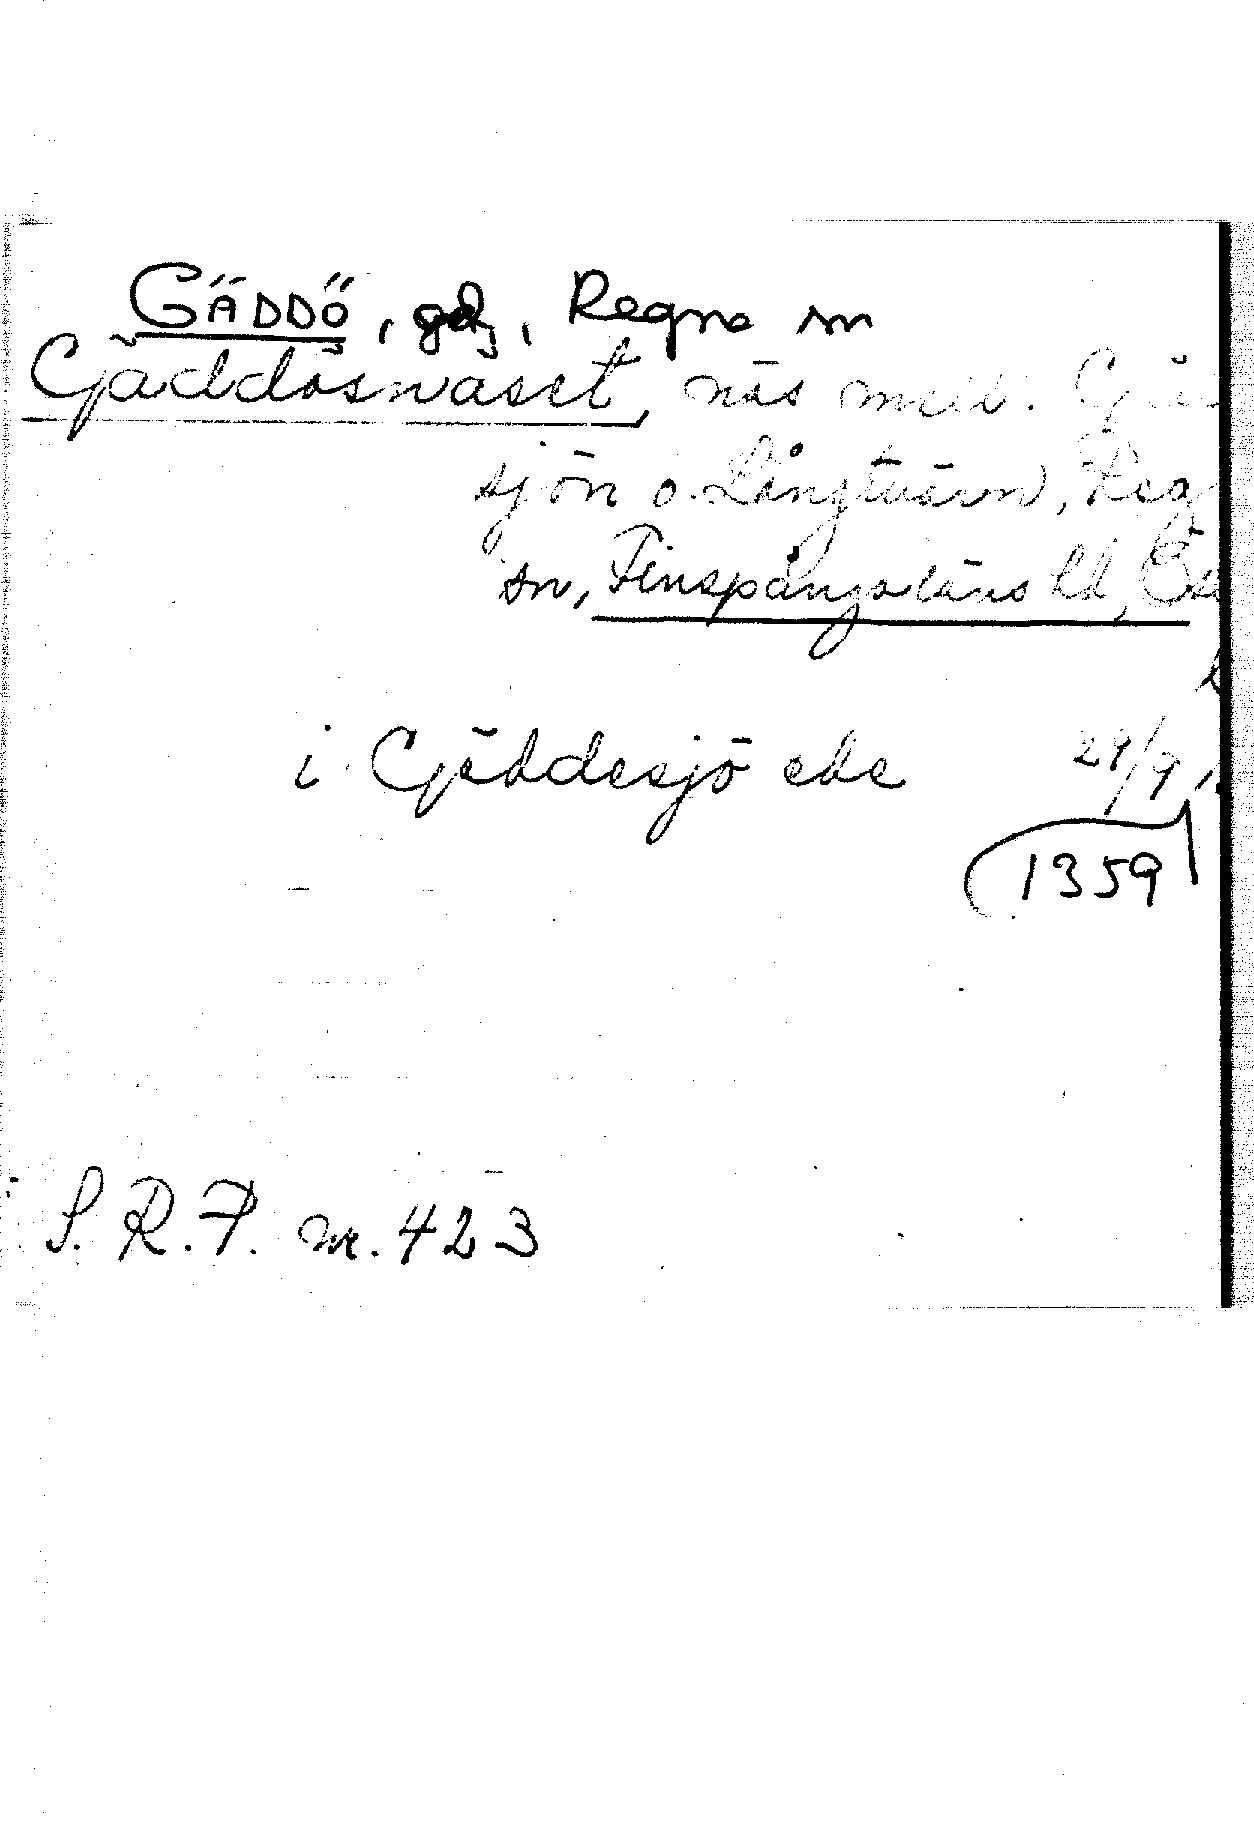 GÄDDÖ, gd, Regna sn
Gäddösnäset, näs mell. Gä
sjön o. Långtvärn, Reg
sn, Finspångaläns hd, Öst
i Gäddesjö ede 29/9
1359
S. R. P. nr. 423